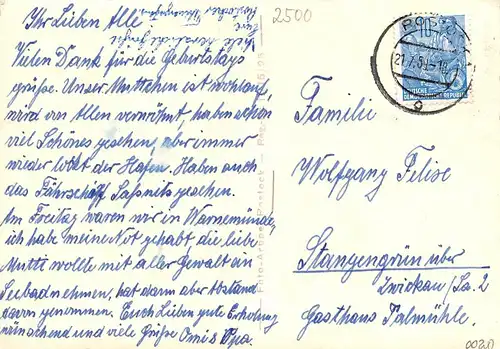 Ihr Lieben Alle!
viele herzliche Grüße
Eure
Vielen Dank für die Geburtstags
grüße. Unser Muttchen ist wohlauf,
wird von Allen verwöhnt, haben schon
viel Schönes gesehen, aber immer
wieder lockt der Hafen. Haben auch
das Fährschiff Saßnitz gesehen.
Am Freitag waren wir in Warnemünde,
ich habe meine Not gehabt, die liebe
Mutti wollte mit aller Gewalt ein
Seebad nehmen, hat dann aber Abstand
davon genommen. Euch Lieben gute Erholung
wünschend und viele Grüße Omi & Opa.
2500
21.7.59-18
g
DEUTSCHE
DEMOKRATISCHE REPUBLIK
10
Familie
Wolfgang Felise
Stangengrün über
Zwickau/Sa. 2
Gasthaus Palmühle.